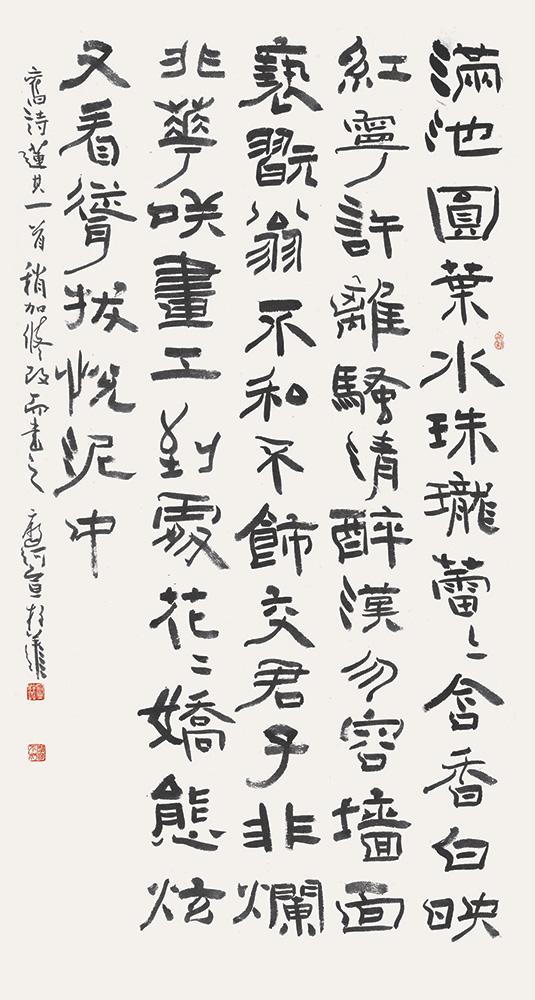 滿池圓葉水珠瓏蕾〻含香白映
紅寧許離騷清醉漢勿容墻面
褻翫翁不和不飾交君子非爛
非華咲畫工到處花〻嬌態炫
又看聳拔泥中
舊詩蓮其一首稍加修改而書之